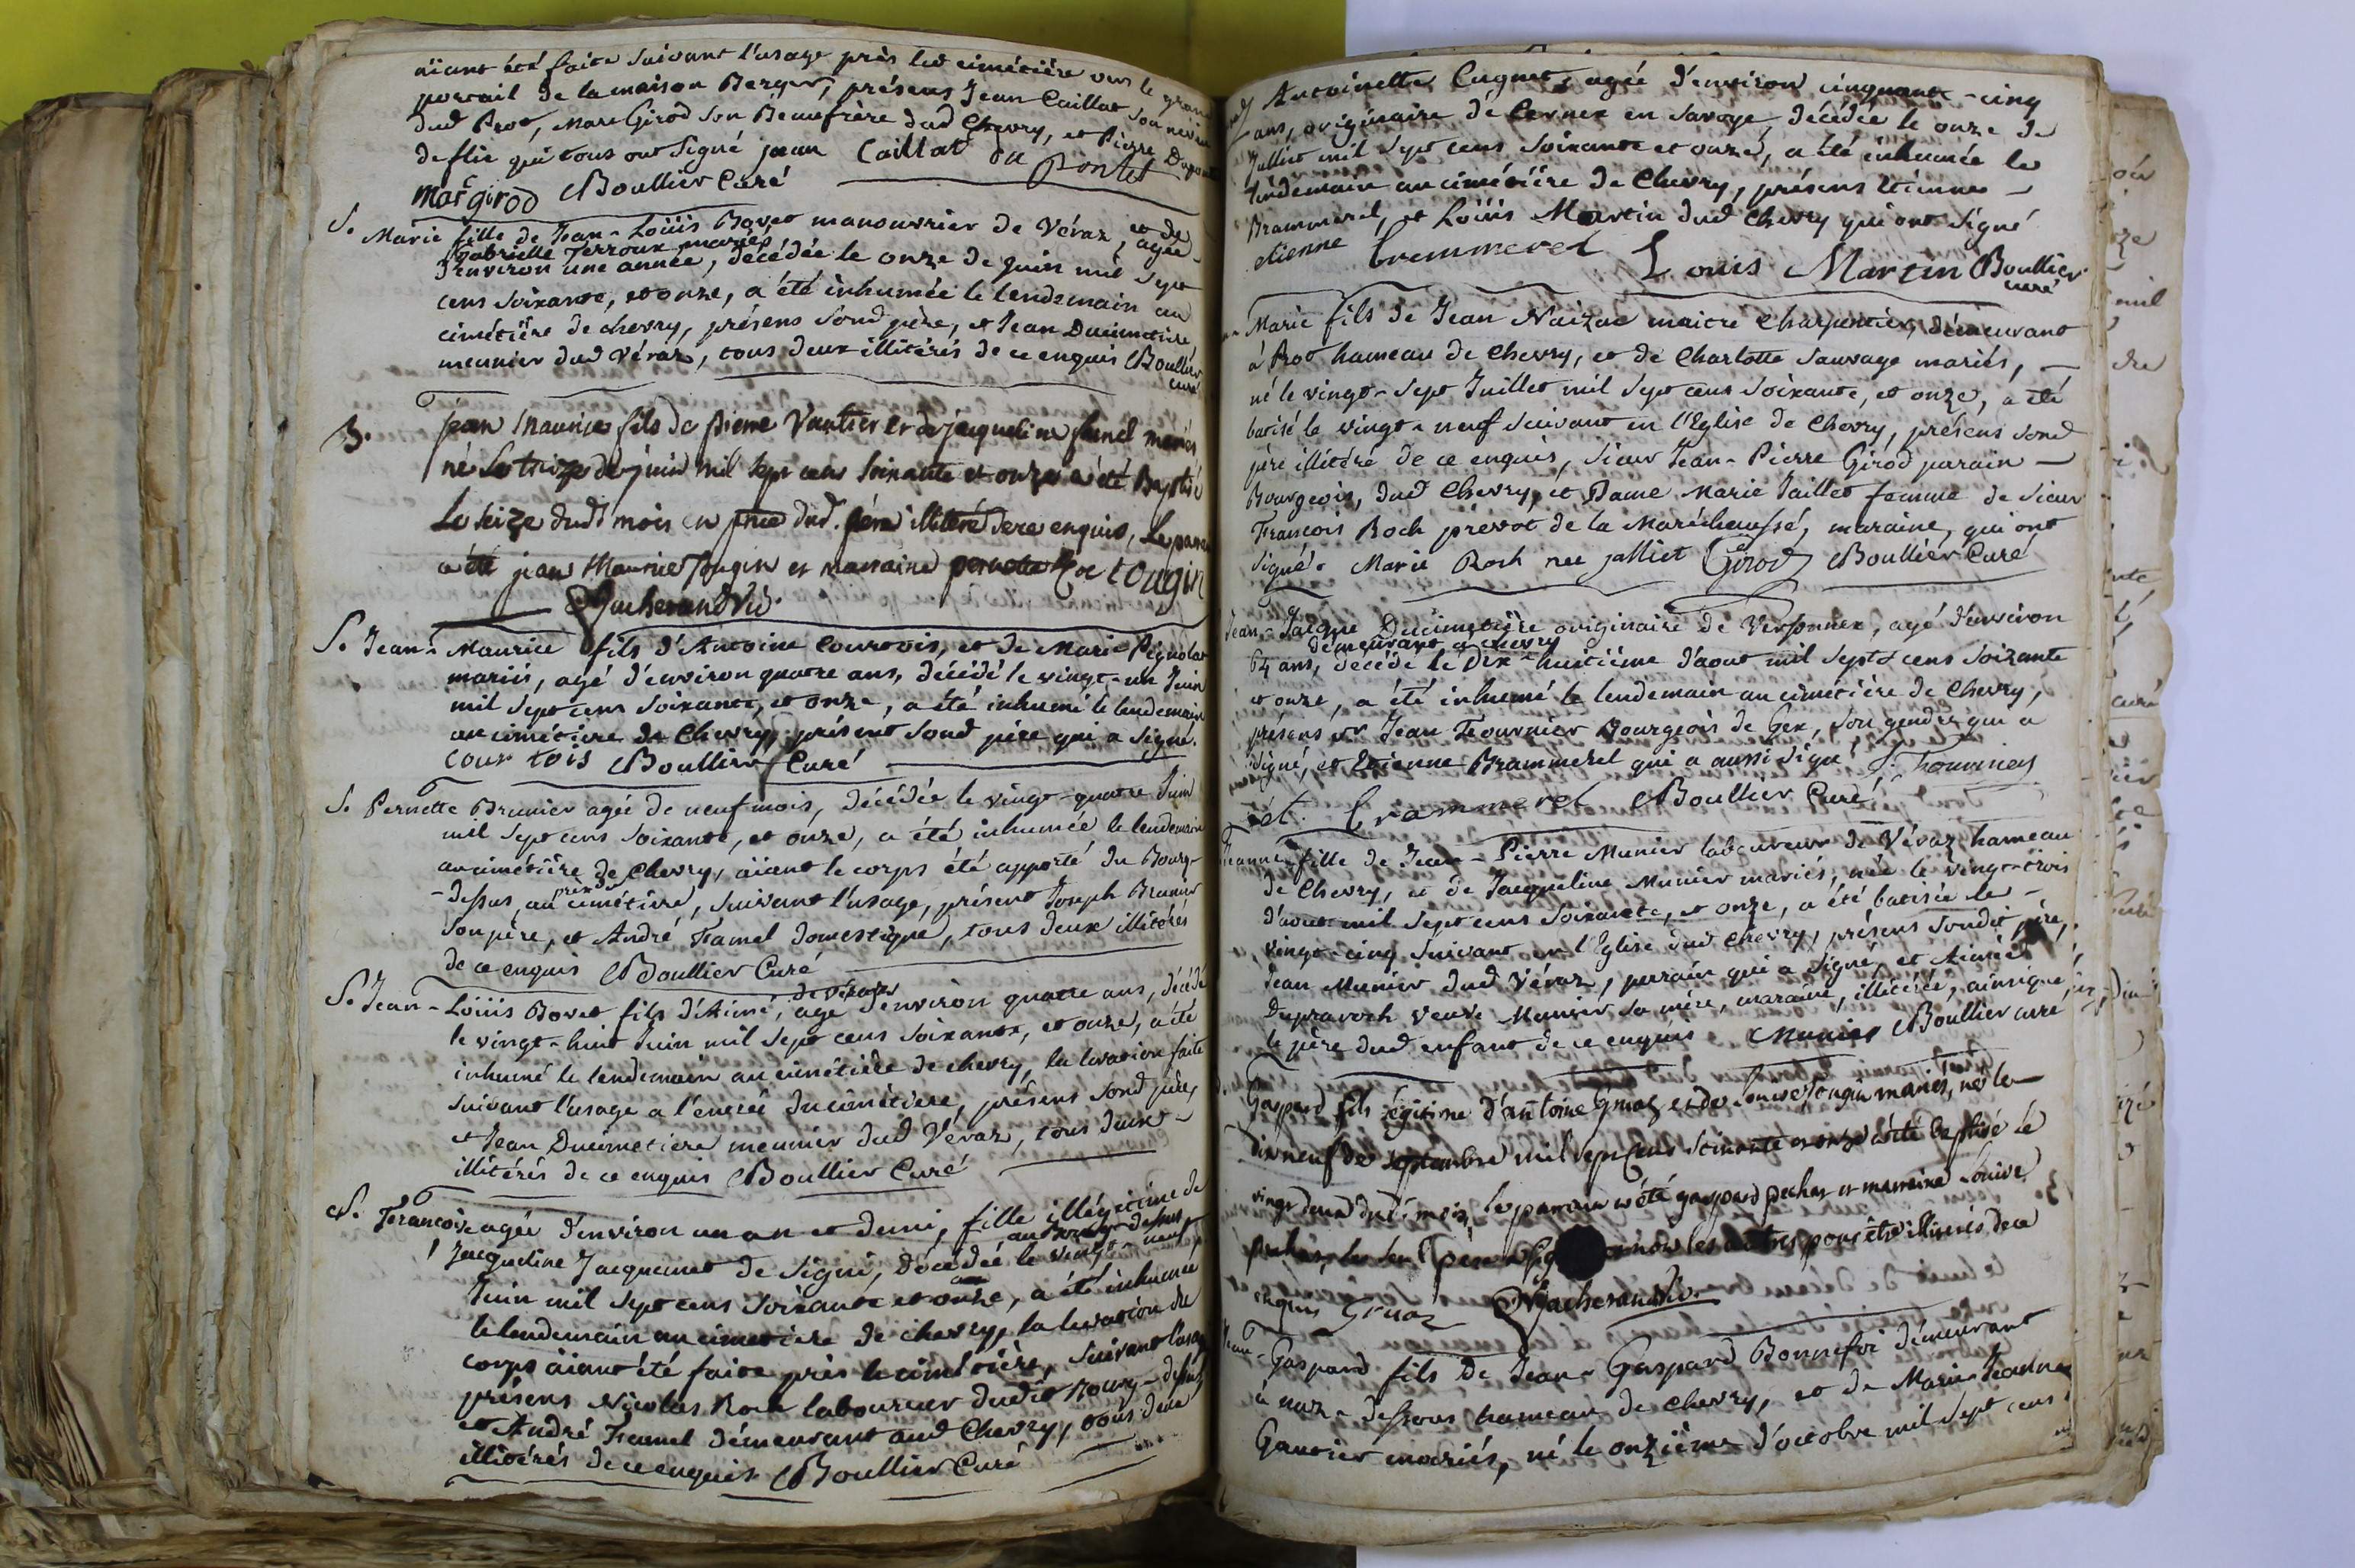 aïant été faite suivant l'usage près led cimétiére vers le grand
portail de la maison Berger, présens Jean Caillat son neveu
dud Prot, Marc Girod son Beaufrère dud Chevry, et Pierre Dupontet
deflie qui tous ont signé jean Caillat du Pontet
marc girod Boullier Curé
S. Marie fille de Jean-Loüis Bovet manouvrier de Véraz, et de
Gabrielle Terroux mariés, agée
d'environ une année, décédée le onze de Juin mil sept
cens soixante, et onze, a été inhumée le lendemain au
cimétiére de chevry, présens sond père, et Jean Ducimetiere
meunier dud Véraz, tous deux illitérés de ce enquis Boullier
curé
B. jean Maurice fils de pierre Vautier et de jacqueline famel mariés
né le treize de juin mil sept cens soixante et onze a été Baptisé
le seize dudt mois en pnce dud. père illitéré de ce enquis, le parain
a été jean Maurice Tougin et marraine pernette tougin
Vacherand Vic.
S. Jean-Maurice fils d'Antoine Courtois, et de Marie Pignolat
mariés, agé d'environ quatre ans, décédé le vingt-un Juin
mil sept cens soixante, et onze, a été inhumé le lendemain
au cimétiere de Chevry, présent sond père qui a signé.
cour tois Boullier Curé
S. Pernette Brunier agée de neuf mois, décédée le vingt-quatre Juin
mil sept cens soixante, et onze, a été inhumée le lendemain
au cimétiére de Chevry, aïant le corps été apporté du Bourg-
-dessus, au près du cimétiére, suivant l'usage, présent Joseph Brunier
son père, et André Famel domestique, tous deux illitérés
de ce enquis Boullier Curé
S. Jean-Loüis Bovet fils d'Aimé, de Véraz, agé d'environ quatre ans, décédé
le vingt-huit Juin mil sept cens soixante, et onze, a été
inhumé le lendemain au cimétiére de chevry, la levation faite
suivant l'usage a l'entrée du cimétiere, présens sond père,
et Jean Ducimetiere meunier dud Véraz, tous deux
illitérés de ce enquis Boullier Curé
S. Francoise agée d'environ un an et demi, fille illégitime de
Jacqueline Jacquemet de Signi, décédée au Bourg-dessus le vingt-neuf
Juin mil sept cens soixante et onze, a été inhumée
le lendemain au cimetiere de chevry, la levation du
corps aïant été faite près le cimétiére, suivant l'usage
présens Nicolas Roch laboureur dudit Bourg-dessus
et André Famel démeurant aud Chevry, tous deux
illitérés de ce enquis Boullier Curé
Antoinette Cugnet, agée d'environ cinquante-cinq
ans, originaire de Cernex en Savoye, décédée le onze de
Juillet mil sept cens soixante et onze, a été inhumée le
lendemain au cimétiére de Chevry, présens Etienne
Brammerel, et Loüis Martin dud Chevry qui ont signé
etienne brammerel Louis Martin Boullier
curé
Marie fils de Jean Naizac maitre Charpentier, démeurant
à Prot hameau de Chevry, et de Charlotte Sauvage mariés,
né le vingt-sept Juillet mil sept cens soixante, et onze, a été
batisé le vingt-neuf suivant en l'Eglise de Chevry, présens sond
père illitéré de ce enquis, sieur Jean-Pierre Girod parain
Bourgeois, dud Chevry, et Dame Marie Jaillet femme de sieur
Francois Roch prévot de la Maréchaussé, maraine, qui ont
signé. Marie Roch nee jalliet Girod Boullier Curé
Jean-Jacque Ducimetiére originaire de Versonnex, agé d'environ
64 ans, démeurant a chevry décédé le Dix-huitiéme d'aout mil sept cens soixante
et onze, a été inhumé le lendemain au cimétiére de Chevry,
présens sr Jean Fournier Bourgeois de Gex, son gendre, qui a
signé, et Etienne Brammerel qui a aussi signé J. Fournier
et. brammerel Boullier Curé
Jeanne fille de Jean-Pierre Munier laboureur de Véraz hameau
de Chevry, et de Jacqueline Munier mariés, née le vingt-trois
d'aout mil sept cens soixante, et onze, a été batisée le
vingt-cinq suivant en l'Eglise dud chevry, présens sondit père,
Jean Munier dud Véraz, parain qui a signé, et Aimée
Depravoch veuve Munier sa mère, maraine, illitérée, ainsi que
le père dud enfant de ce enquis Munier Boullier curé
Gaspard fils légitime d'antoine Gruaz et de Louise Tougin mariés, né le
dix neuf de septembre mil sept cens soixante et onze a été baptisé le
vingt deux dudt mois, le parrain a été gaspard pechas et marraine Louise
pechas, le seul père a sig non les autres pour être illiterés de ce
enquis Gruaz Vacherand Vic.
Jean-Gaspard fils de Jean-Gaspard Bonnefoi démeurant
à naz-dessous hameau de chevry, et de Marie Jeanne
Gautier mariés, né le onziéme d'octobre mil sept cens